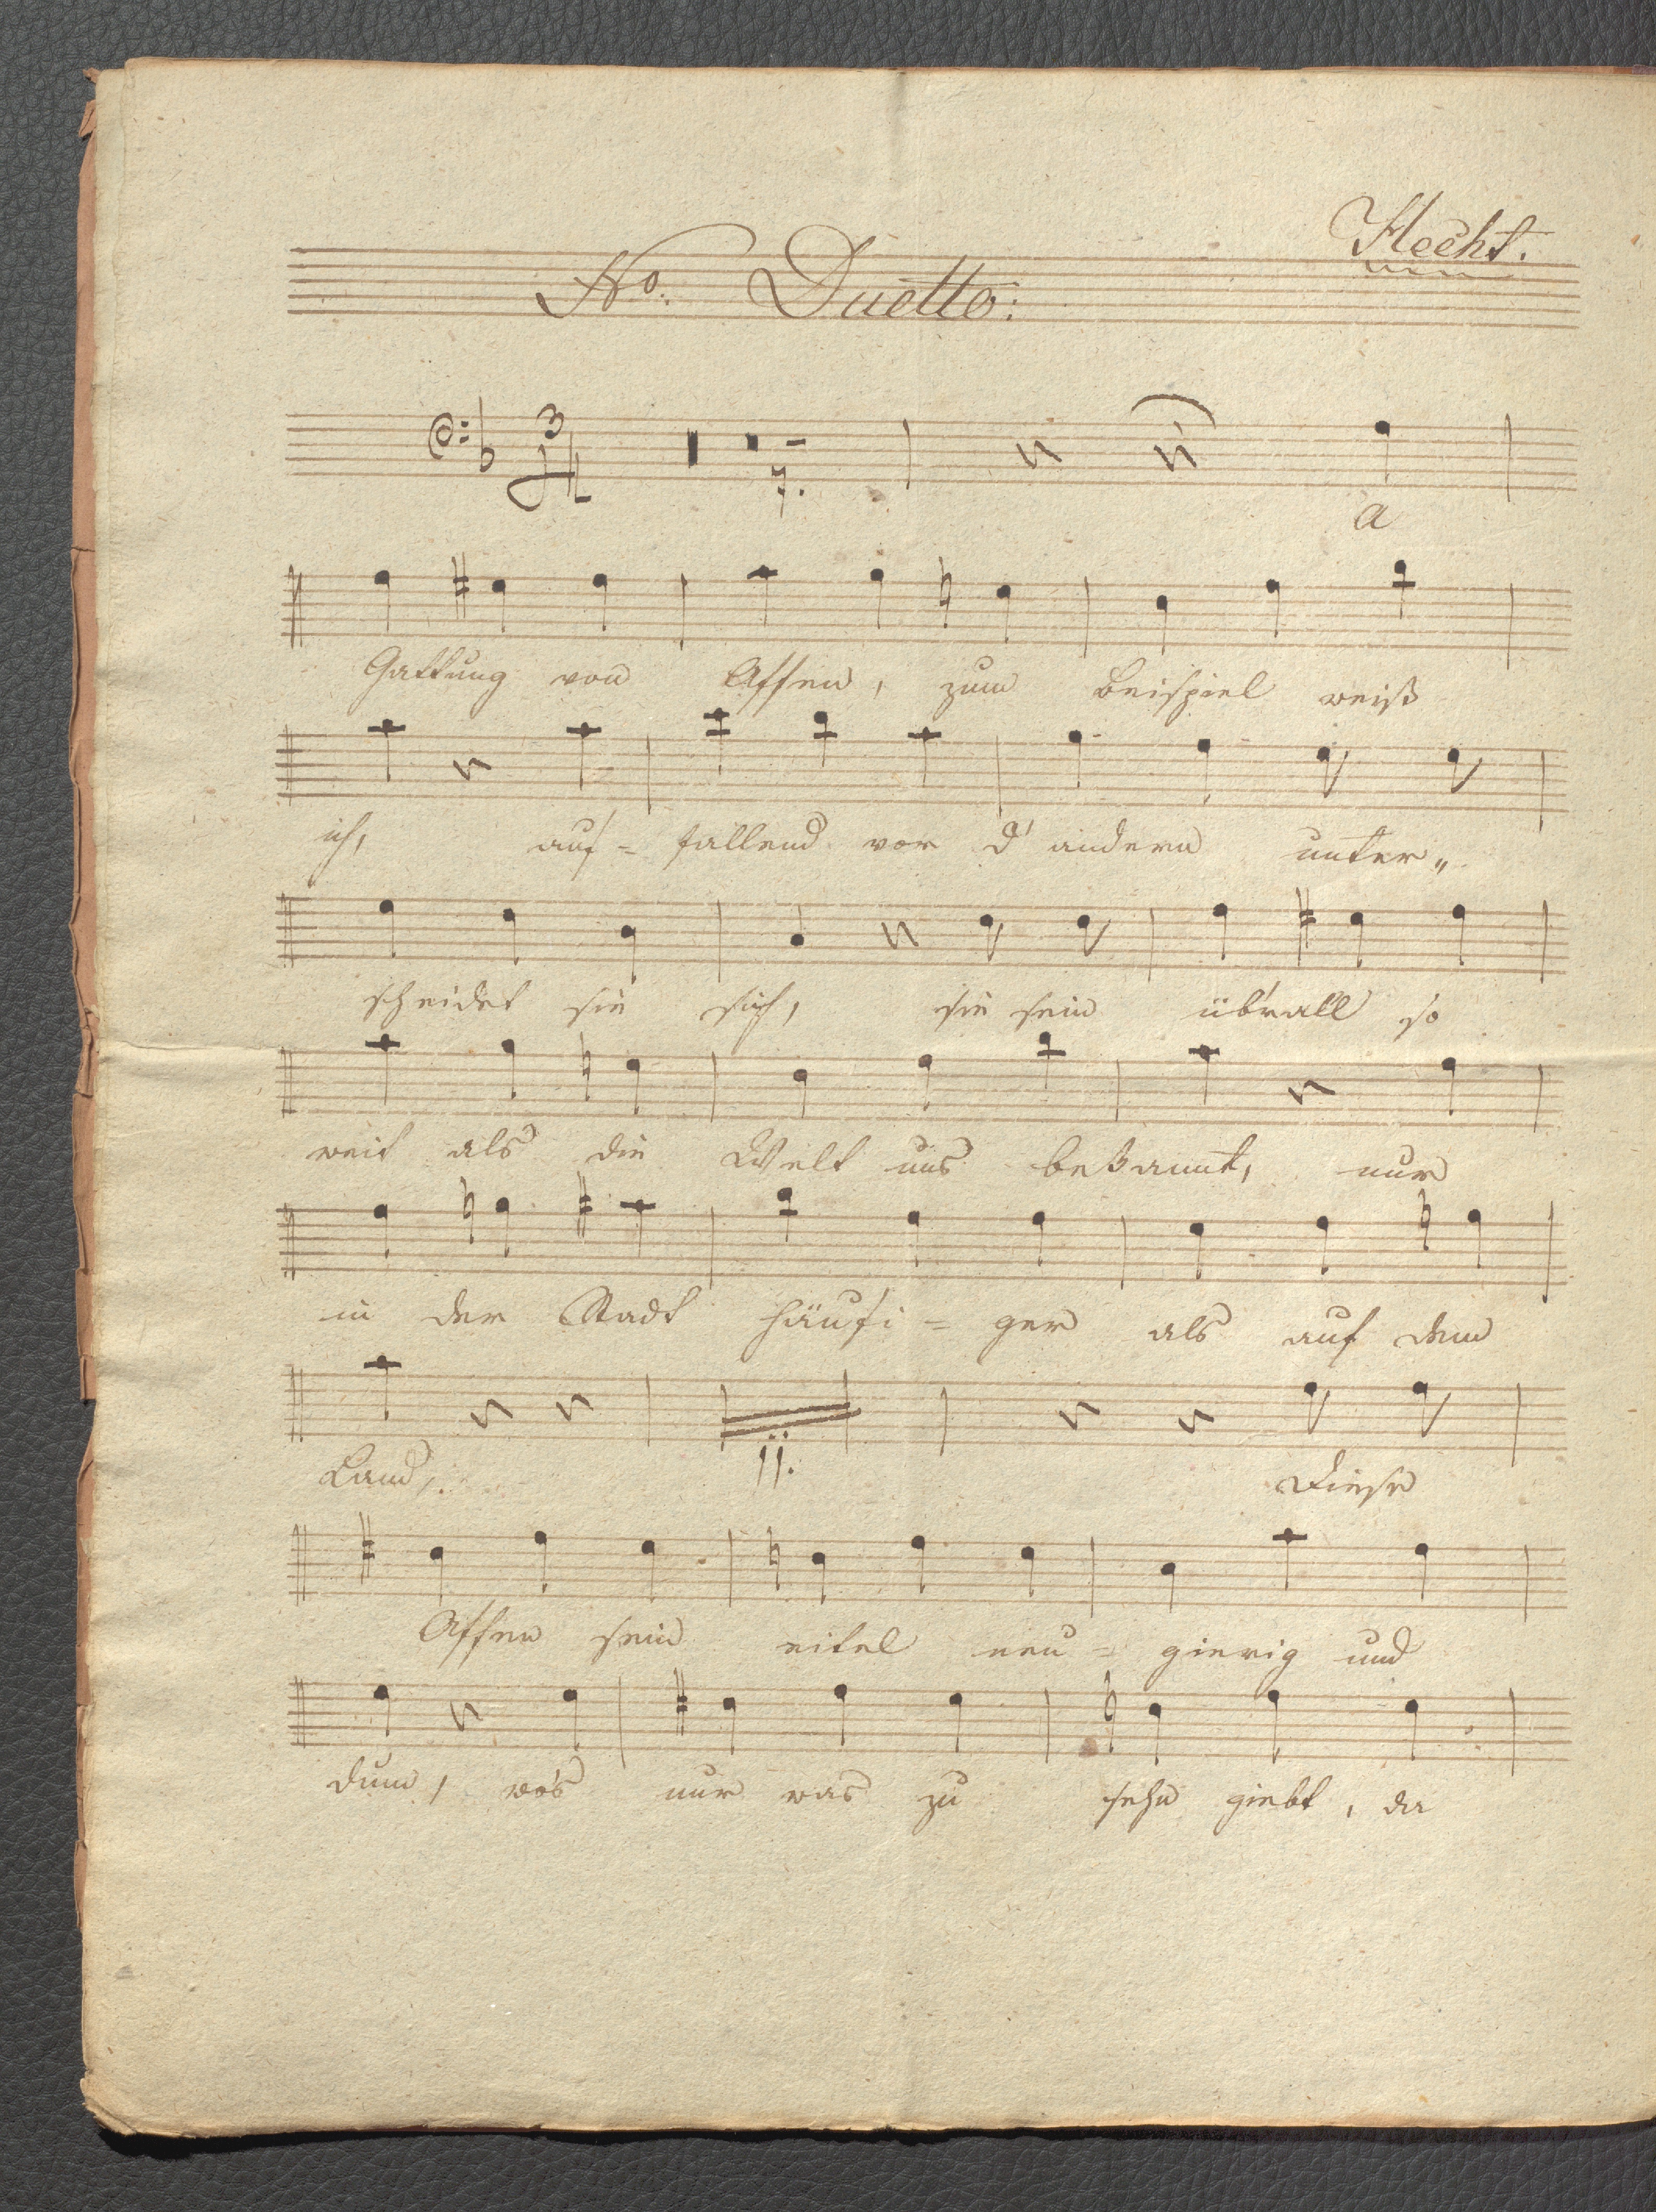 Hecht.
No. Duetto:
3
4
7.
a
Gattung von Affen, zum Beispiel weiß
ich, auf = fallend vor d' andern unter„
scheidet sie sich, sie sein üb'rall so
weit als die Welt uns bekannt, nur
in der Stadt häufi = ger als auf dem
Land,. 11. Diese
Affen sein eitel neu = gierig und
dum, wo's nur was zu sehn giebt, da